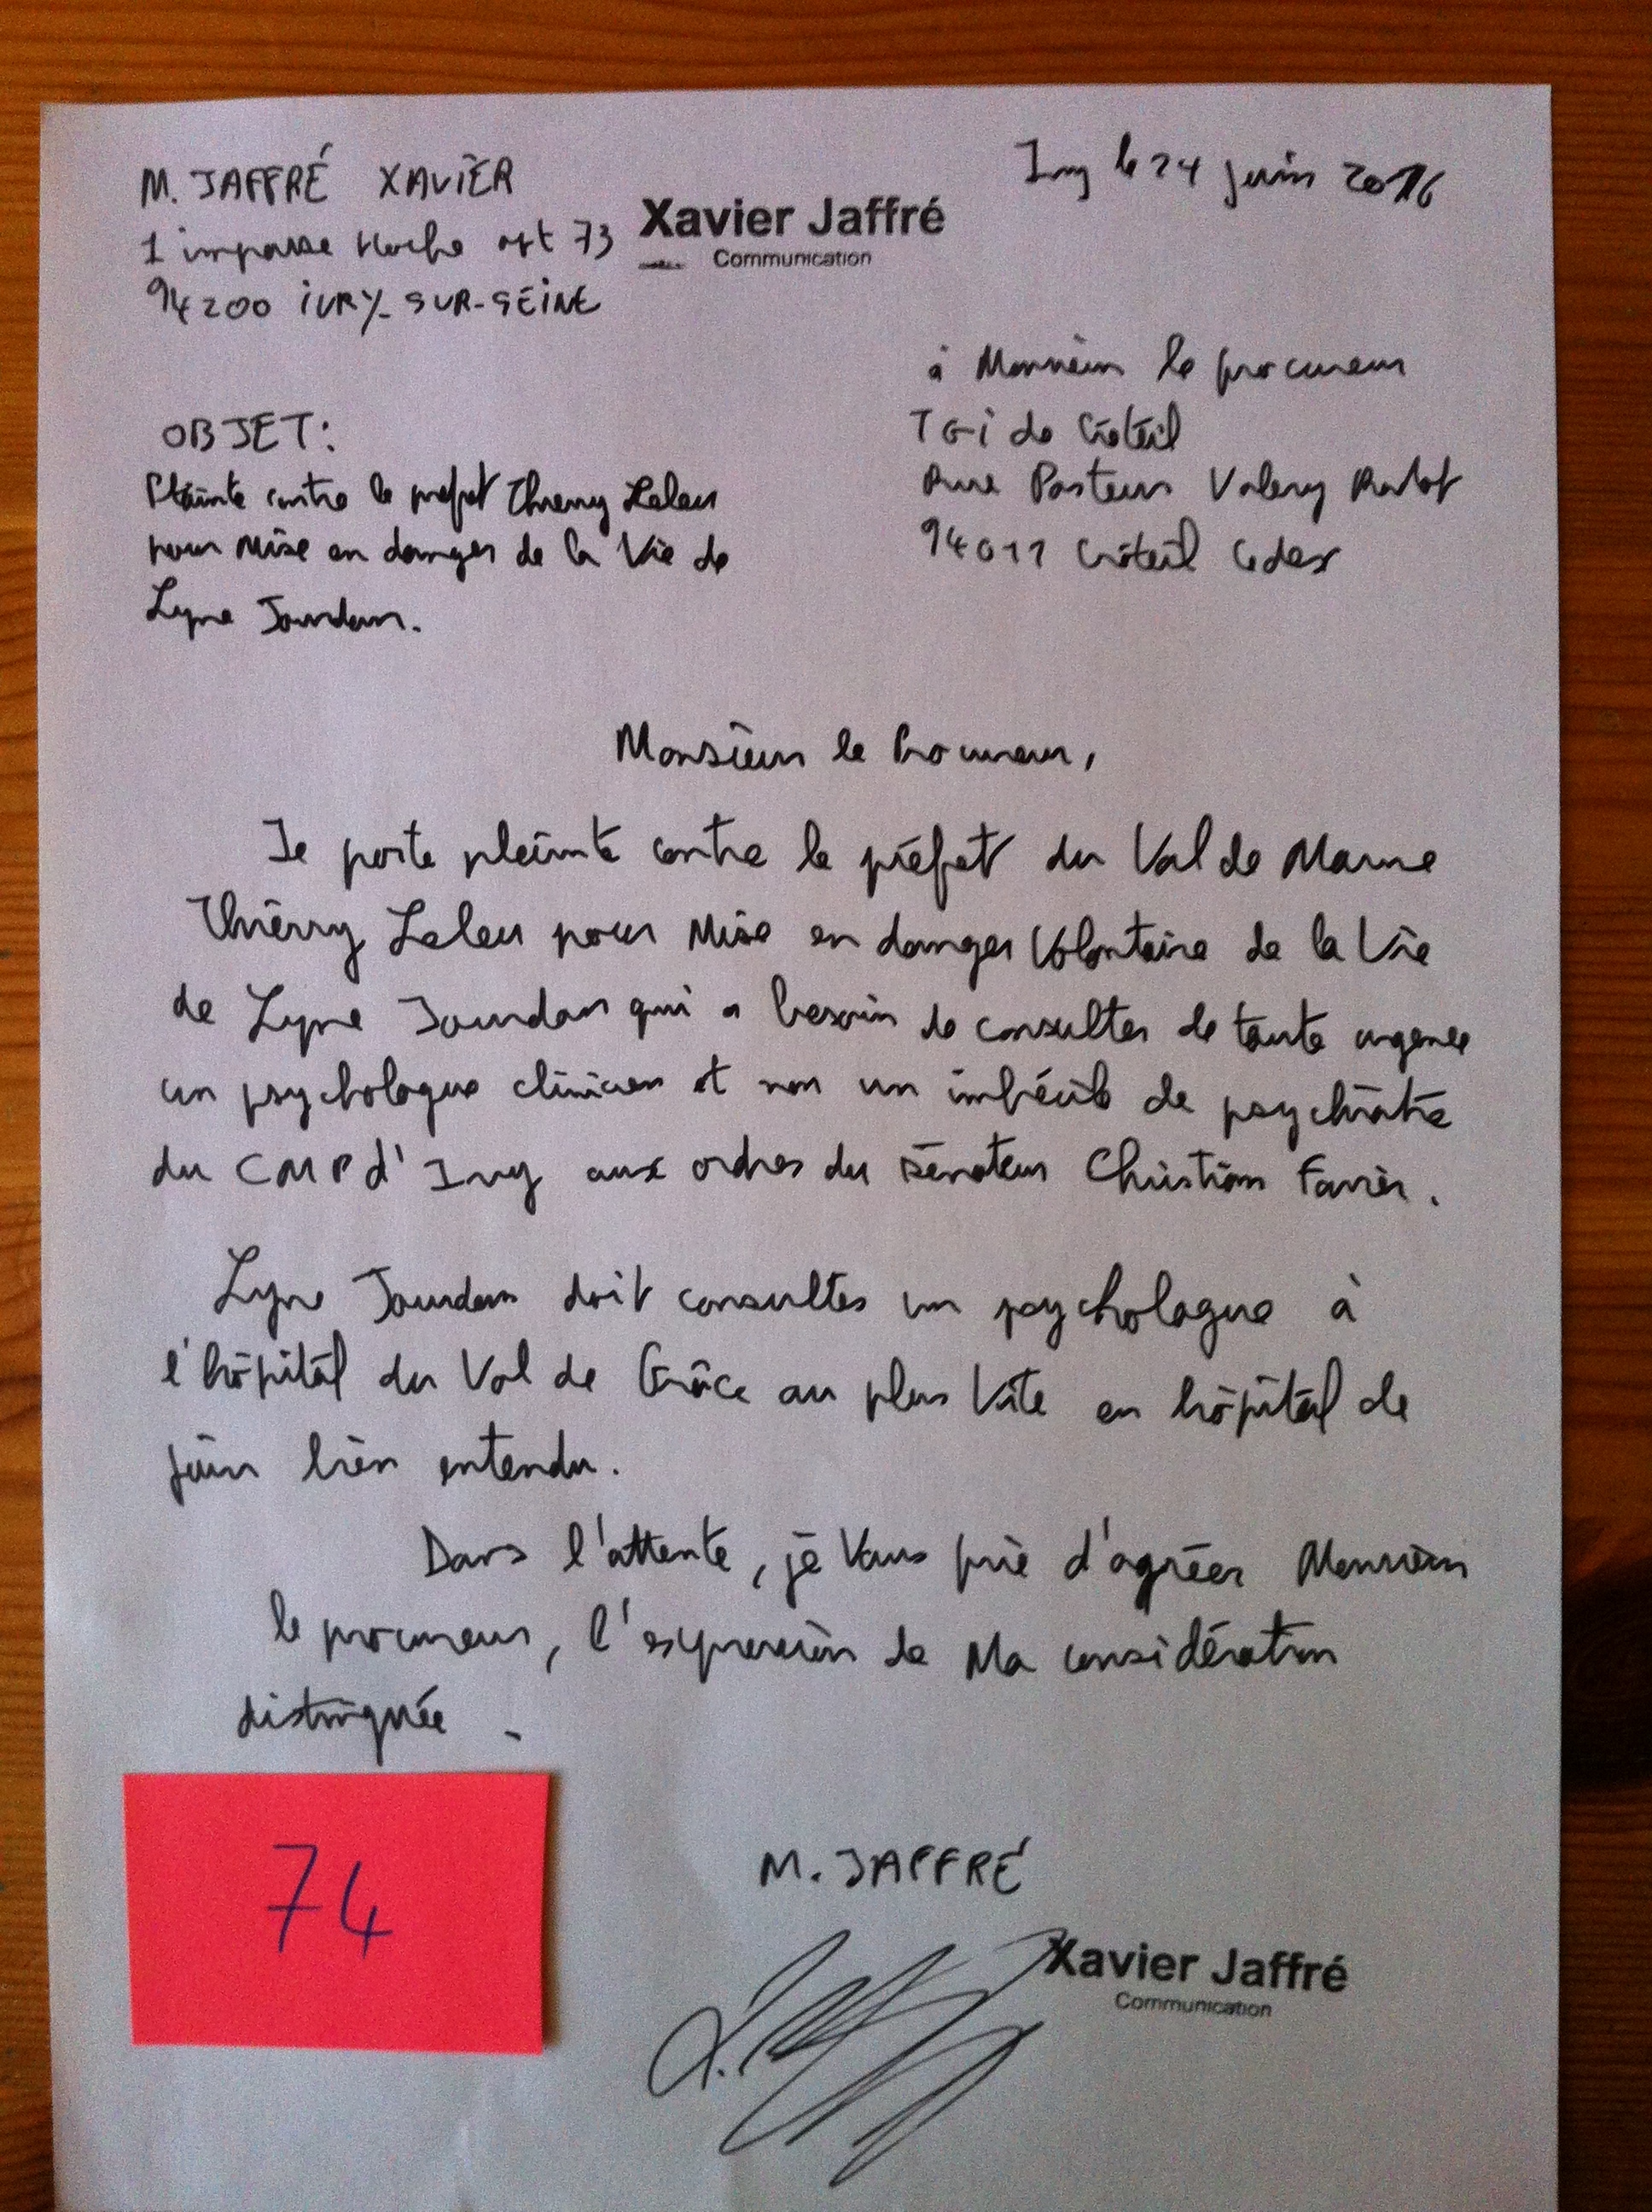 M. JAFFRÉ XAVIER
1 impasse Hoche apt 73
94200 IVRY-SUR-SEINE
Xavier Jaffré
Communication
Ivry le 24 juin 2016
à Monsieur le procureur
TGI de Créteil
Rue Pasteur Valery Radot
94011 Créteil Cedex
OBJET:
Plainte contre le préfet Thierry Leleu
pour Mise en danger de la Vie de
Lyne Jourdan.
Monsieur le Procureur,
Je porte plainte contre le préfet du Val de Marne
Thierry Leleu pour Mise en danger Volontaire de la Vie
de Lyne Jourdan qui a besoin de consulter de toute urgence
un psychologue clinicien et non un imbécile de psychiatre
du CMP d'Ivry aux ordres du sénateur Christian Favier.
Lyne Jourdan doit consulter un psychologue à
l'hôpital du Val de Grâce au plus Vite en hôpital de
jour bien entendu.
Dans l'attente, je Vous prie d'agréer Monsieur
le procureur, l'expression de Ma considération
distinguée.
74
M. JAFFRÉ
Xavier Jaffré
Communication